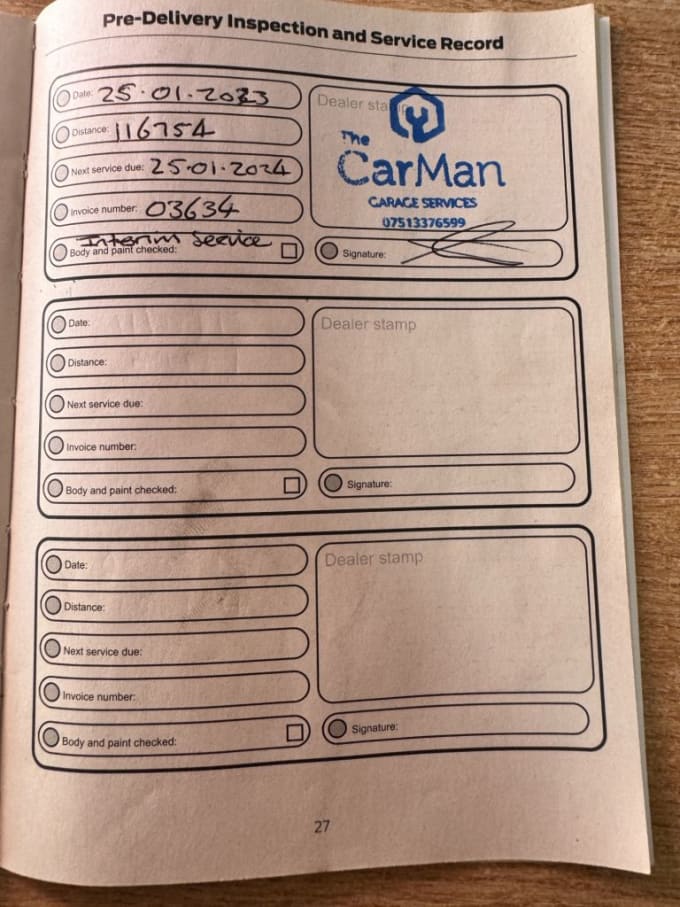 Pre-Delivery Inspection and Service Record
Date: 25.01.2023
Distance: 116754
Next service due: 25.01.2024
Invoice number: 03634
Interim Service
Body and paint checked:
Dealer stamp
The
CarMan
GARAGE SERVICES
07513376599
Signature:
Date:
Distance:
Next service due:
Invoice number:
Body and paint checked:
Dealer stamp
Signature:
Date:
Distance:
Next service due:
Invoice number:
Body and paint checked:
Dealer stamp
Signature:
27